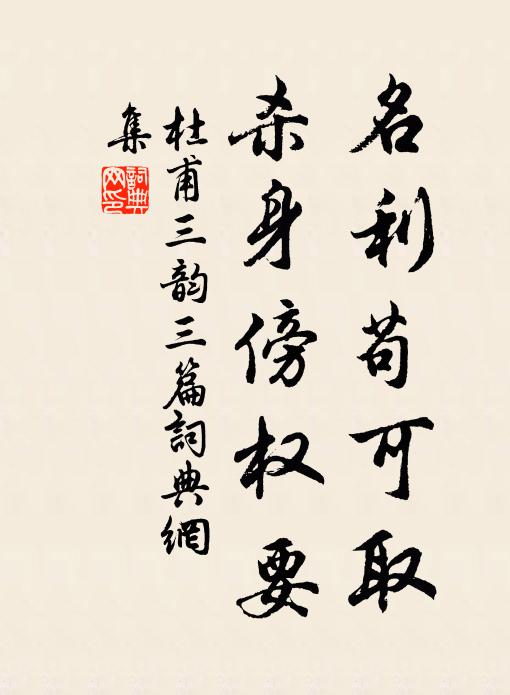 名利苟可取
杀身傍权要
杜甫三韵三篇詞典網
集
詞典网印